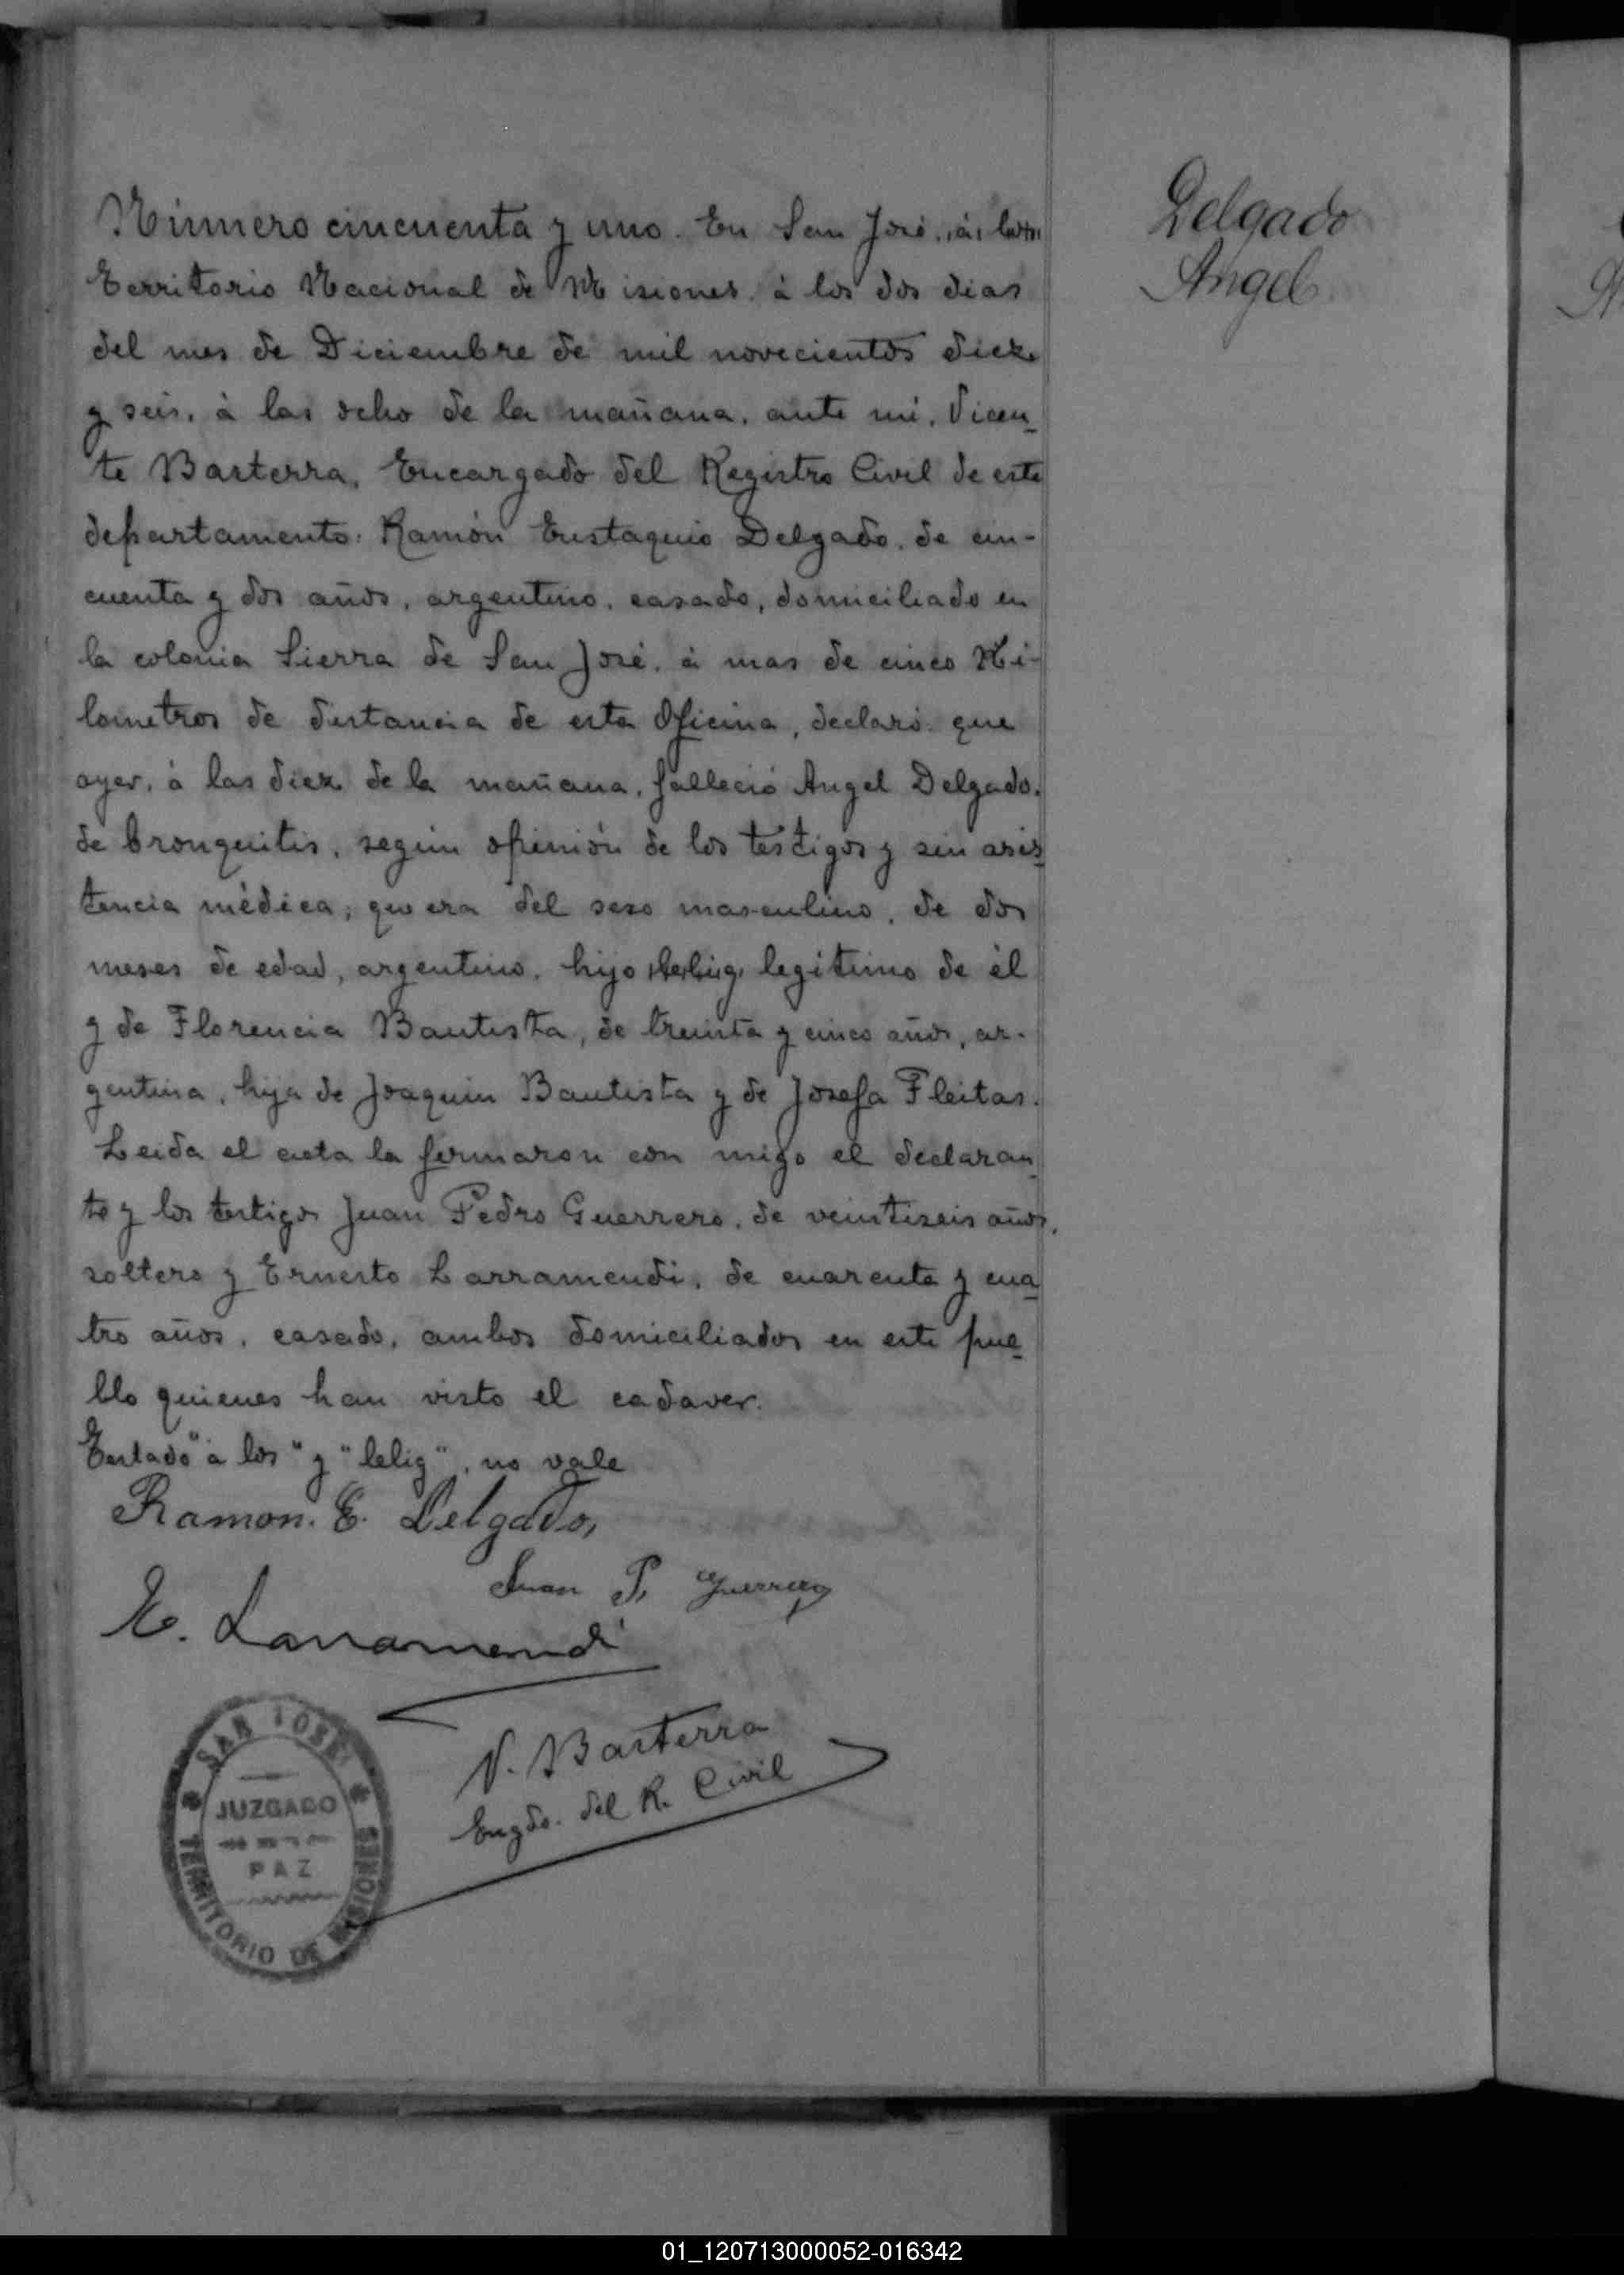 Número cincuenta y uno. En San José, á los
Territorio Nacional de Misiones, á los dos dias
del mes de Diciembre de mil novecientos diez
y seis, á las ocho de la mañana, ante mi, Vicen_
te Basterra, Encargado del Registro Civil de este
departamento: Ramón Eustaquio Delgado, de cin-
cuenta y dos años, argentino, casado, domiciliado en
la colonia Sierra de San José, á mas de cinco Ki-
lometros de distancia de esta Oficina, declaró que
ayer, á las diez de la mañana, falleció Angel Delgado,
de bronquitis, según opinión de los testigos y sin asis_
tencia médica, que era del sexo masculino, de dos
meses de edad, argentino, hijo lelig legítimo de él
y de Florencia Bautista, de treinta y cinco años, ar-
gentina, hija de Joaquin Bautista y de Josefa Fleitas.
Leida el acta la firmaron con migo el declaran_
te y los testigos Juan Pedro Guerrero, de veintiseis años,
soltero y Ernesto Larramendi, de cuarenta y cua_
tro años, casado, ambos domiciliados en este pue_
blo quienes han visto el cadaver.
Testado "á los" y "lelig", no vale
Ramon. E. Delgado,
Juan P. Guerrero
E. Larramendi
V. Basterra
Engdo. del R. Civil
SAN JOSE
JUZGADO
PAZ
TERRITORIO DE MISIONES
Delgado
Angel
01_120713000052-016342